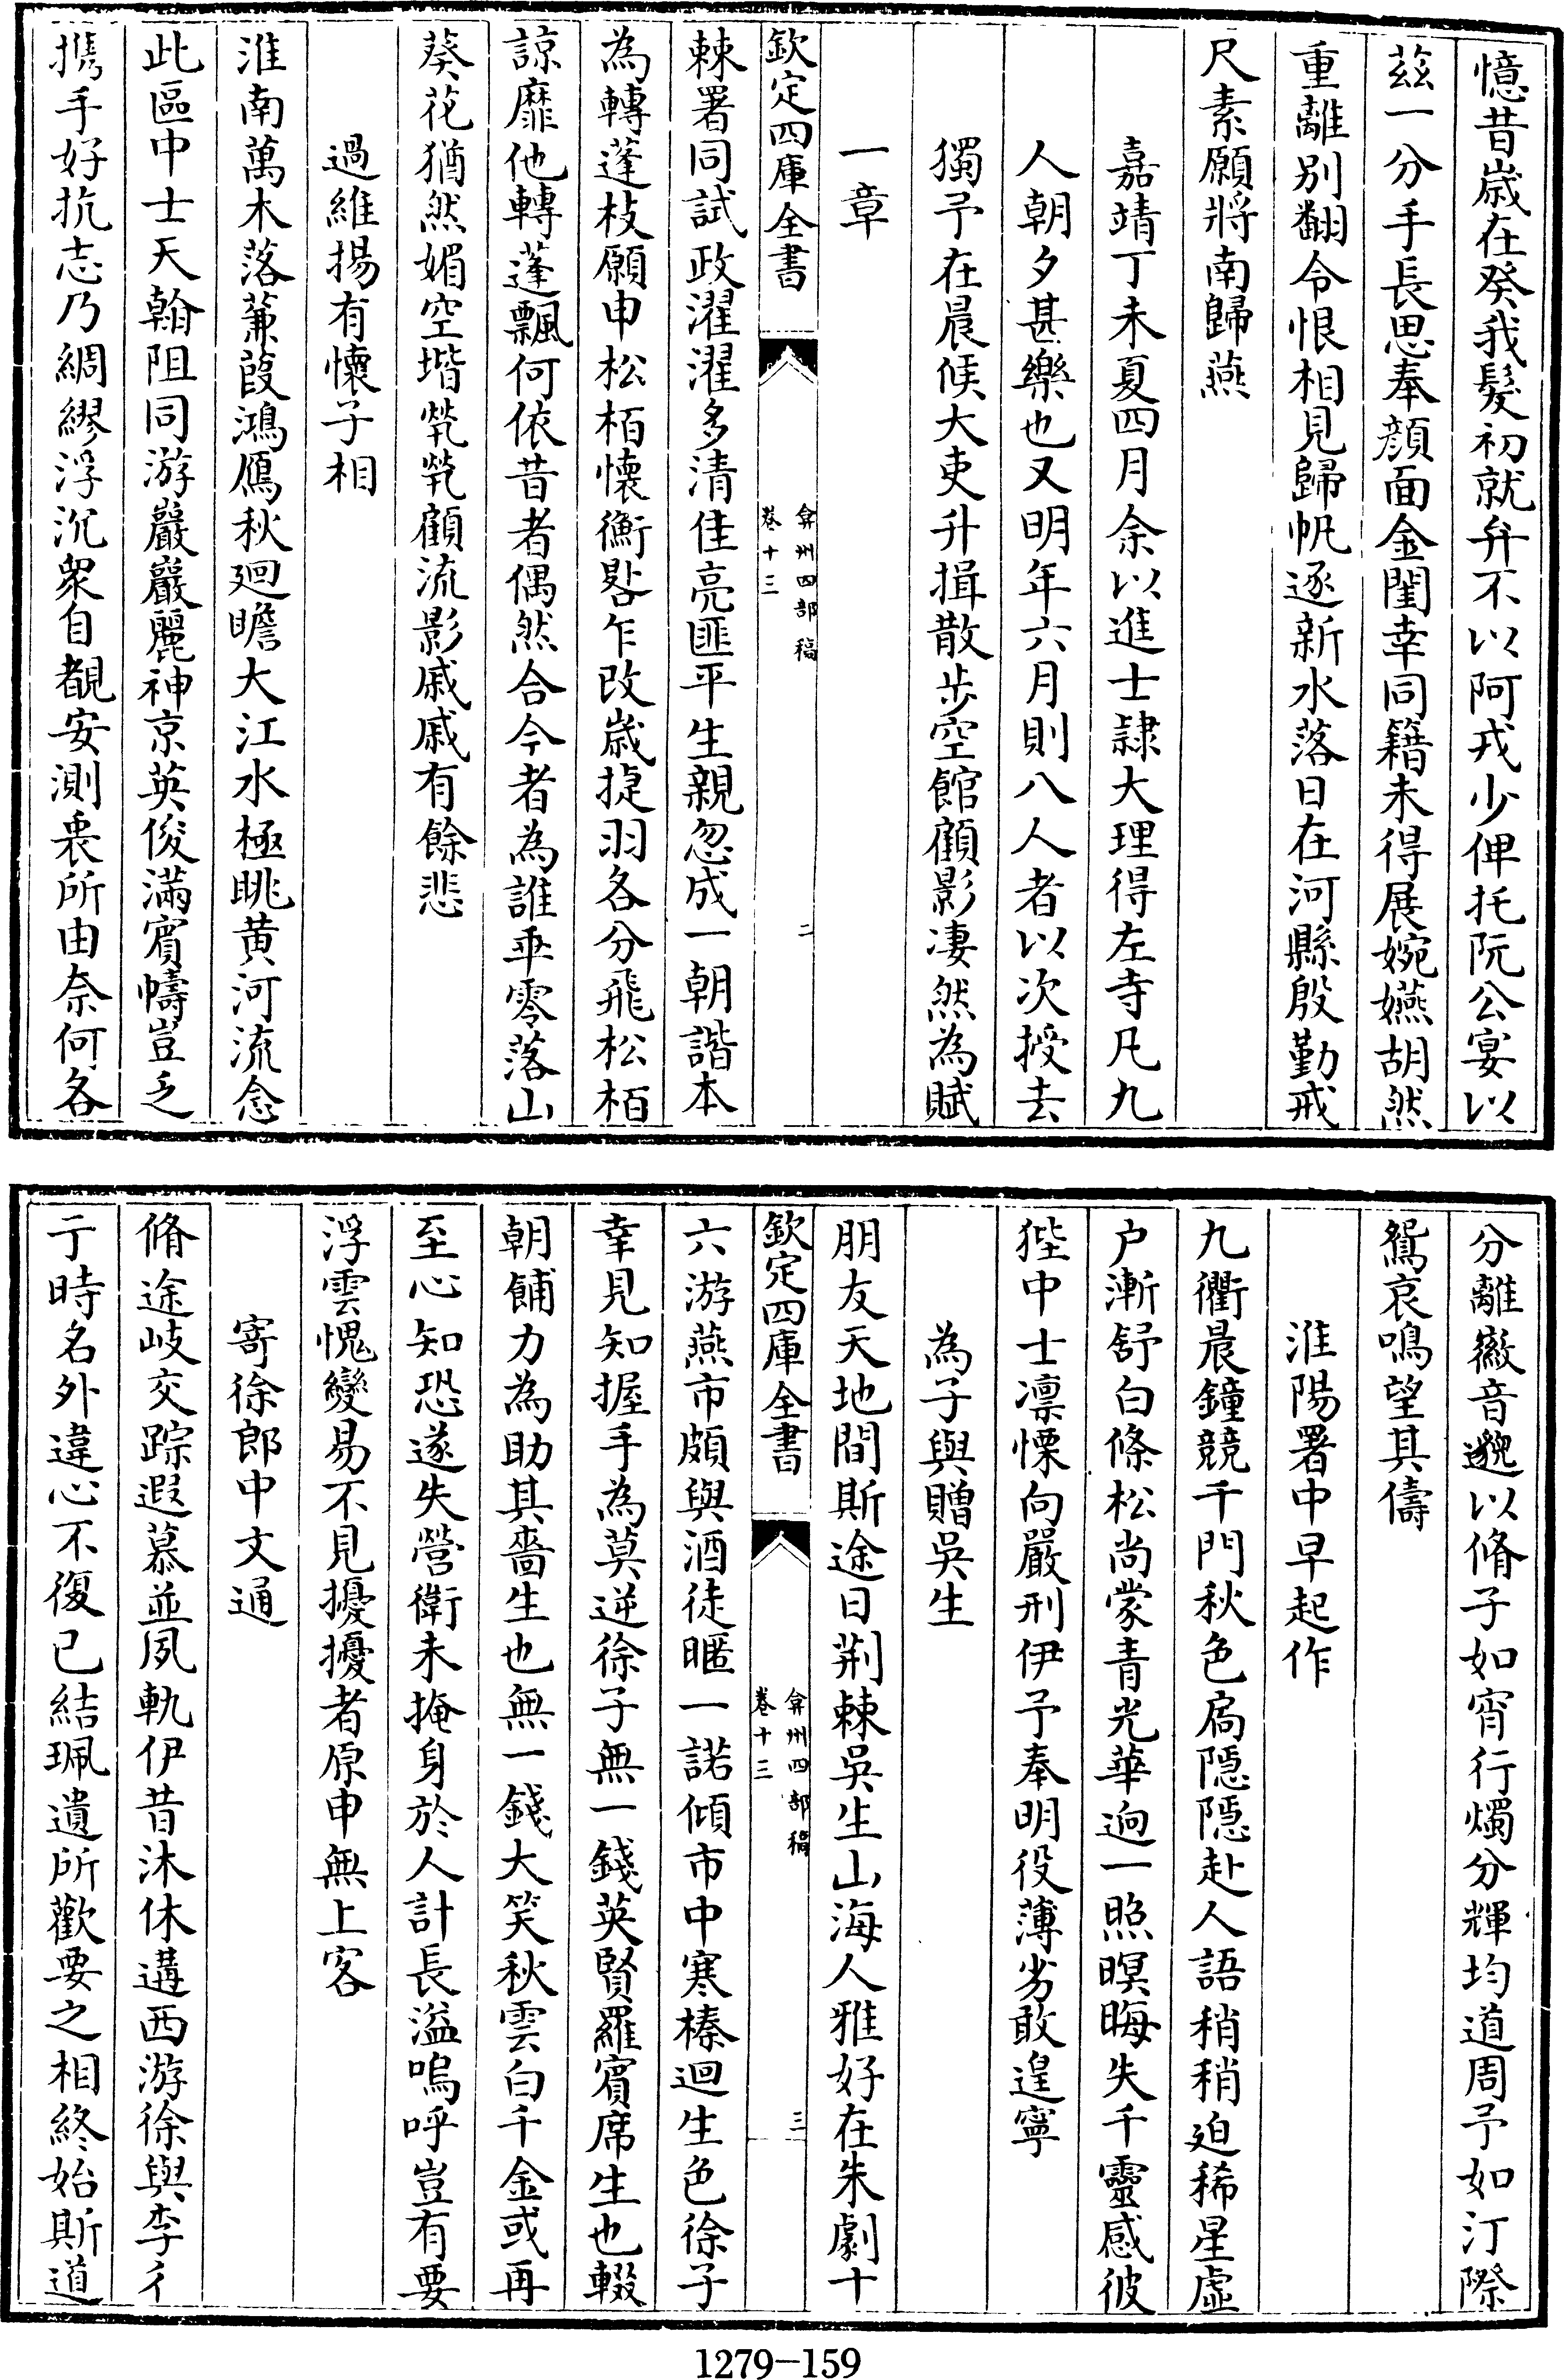 憶昔嵗在癸我髮初就弁不以阿戎少俾托阮公宴以
兹一分手長思奉顔面金閨幸同籍未得展婉嬿胡然
重離别翻令恨相見歸帆逐新水落日在河縣殷勤戒
尺素願將南歸燕
嘉靖丁未夏四月余以進士隷大理得左寺凡九
人朝夕甚樂也又明年六月則八人者以次授去
獨予在晨候大吏升揖散步空館顧影凄然為賦
一章
欽定四庫全書
弇州四部稿
卷十三
二
棘署同試政濯濯多清佳亮匪平生親忽成一朝諧本
為轉蓬枝願申松栢懷衡晷乍改嵗捷羽各分飛松栢
諒靡他轉蓬飄何依昔者偶然合今者為誰乖零落山
葵花猶然媚空堦煢煢顧流影戚戚有餘悲
過維揚有懷子相
淮南萬木落蒹葭鴻鴈秋廻瞻大江水極眺黄河流念
此區中士天翰阻同游巖巖麗神京英俊滿賓幬豈乏
携手好抗志乃綢繆浮沉衆自覩安測裏所由奈何各
分離徽音邈以脩子如宵行燭分輝均道周予如汀際
鴛哀鳴望其儔
淮陽署中早起作
九衢晨鐘競千門秋色扃隠隠赴人語稍稍迫稀星虚
户漸舒白條松尚蒙青光華逈一照暝晦失千靈感彼
狴中士凛慄向嚴刑伊予奉明役薄劣敢遑寧
為子與贈吳生
朋友天地間斯途日荆棘吳生山海人雅好在朱劇十
欽定四庫全書
弇州四部稿
卷十三
三
六游燕市頗與酒徒暱一諾傾市中寒榛迴生色徐子
幸見知握手為莫逆徐子無一錢英賢羅賓席生也輟
朝餔力為助其嗇生也無一錢大笑秋雲白千金或再
至心知恐遂失營衛未掩身於人計長溢嗚呼豈有要
浮雲愧變易不見擾擾者原申無上客
寄徐郎中文通
脩途岐交踪遐慕並夙軌伊昔沐休遘西游徐與李彳
亍時名外違心不復已結珮遺所歡要之相終始斯道
1279-159